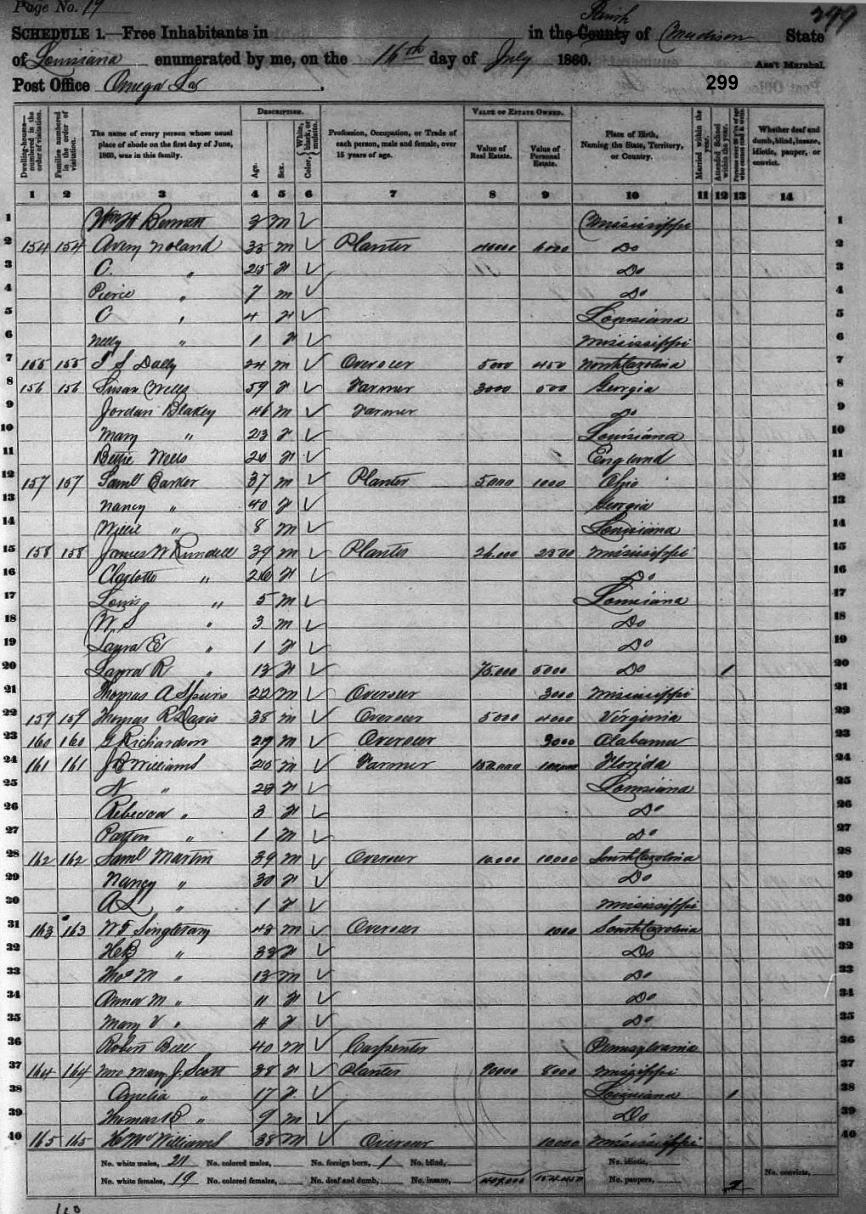 Page No. 19
299
SCHEDULE 1.—Free Inhabitants in in the County Parish of Madison State
of Louisiana enumerated by me, on the 16th day of July 1860. Ass't Marshal.
Post Office Omega La
299
Dwelling-house—numbered in the order of visitation.
Families numbered in the order of visitation.
The name of every person whose usual place of abode on the first day of June, 1860, was in this family.
DESCRIPTION.
Age.
Sex.
Color, White, black, or mulatto.
Profession, Occupation, or Trade of each person, male and female, over 15 years of age.
VALUE OF ESTATE OWNED.
Value of Real Estate.
Value of Personal Estate.
Place of Birth, Naming the State, Territory, or Country.
Married within the year.
Attended School within the year.
Persons over 20 y'rs of age who cannot read & write.
Whether deaf and dumb, blind, insane, idiotic, pauper, or convict.
1 2 3 4 5 6 7 8 9 10 11 12 13 14
1 Wm H Bennett 3 m ✓ Mississippi 1
2 154 154 Avery Noland 33 m ✓ Planter 6000 Do 2
3 C. " 25 f ✓ Do 3
4 Pierce " 7 m ✓ Do 4
5 C " 4 f ✓ Louisiana 5
6 Nelly " 1 f ✓ Mississippi 6
7 155 155 24 m ✓ Overseer 5000 450 North Carolina 7
8 156 156 Susan Wells 59 f ✓ Farmer 3000 500 Georgia 8
9 Jordan Blakey 46 m ✓ Farmer Do 9
10 Mary " 23 f ✓ Louisiana 10
11 Bettie Wells 26 f ✓ England 11
12 157 157 Saml 37 m ✓ Planter 5000 1000 Ohio 12
13 Nancy " 40 f ✓ Georgia 13
14 Willie " 8 m ✓ Louisiana 14
15 158 158 James W Rundell 39 m ✓ Planter 26.000 2500 Mississippi 15
16 Charlotte " 26 f ✓ Do 16
17 Louis " 5 m ✓ Louisiana 17
18 W S " 3 m ✓ Do 18
19 Laura E " 1 f ✓ Do 19
20 Laura R " 13 f ✓ 75.000 5000 Do 1 20
21 Thomas A 22 m ✓ Overseer 3000 Mississippi 21
22 159 159 Thomas R Davis 38 m ✓ Overseer 5000 4000 Virginia 22
23 160 160 G Richardson 29 m ✓ Overseer 3000 Alabama 23
24 161 161 J B Williams m ✓ Farmer Florida 24
25 N " 23 f ✓ Louisiana 25
26 Rebecca " 3 f ✓ Do 26
27 Patton " 1 m ✓ Do 27
28 162 162 Saml Martin 39 m ✓ Overseer 10.000 10000 South Carolina 28
29 Nancy " 30 f ✓ Do 29
30 A L " 1 f ✓ Mississippi 30
31 163 163 W F Singletary 43 m ✓ Overseer 1000 South Carolina 31
32 " 33 f ✓ Do 32
33 Thos M " 13 m ✓ Do 33
34 Anna M " 11 f ✓ Do 34
35 Mary V " 4 f ✓ Do 35
36 Robin Bell 40 m ✓ Carpenter Pennsylvania 36
37 164 164 Mrs Mary J. Scott 38 f ✓ Planter 90000 8000 Missippi 37
38 Amelia " 17 f ✓ Louisiana 1 38
39 Thomas " 9 m ✓ Do 39
40 165 165 H McWilliams 38 m ✓ Overseer 10000 Mississippi 40
No. white males, 21 No. colored males, No. foreign born, 1 No. blind, No. idiotic,
No. white females, 19 No. colored females, No. deaf and dumb, No. insane, No. paupers, 2 No. convicts,